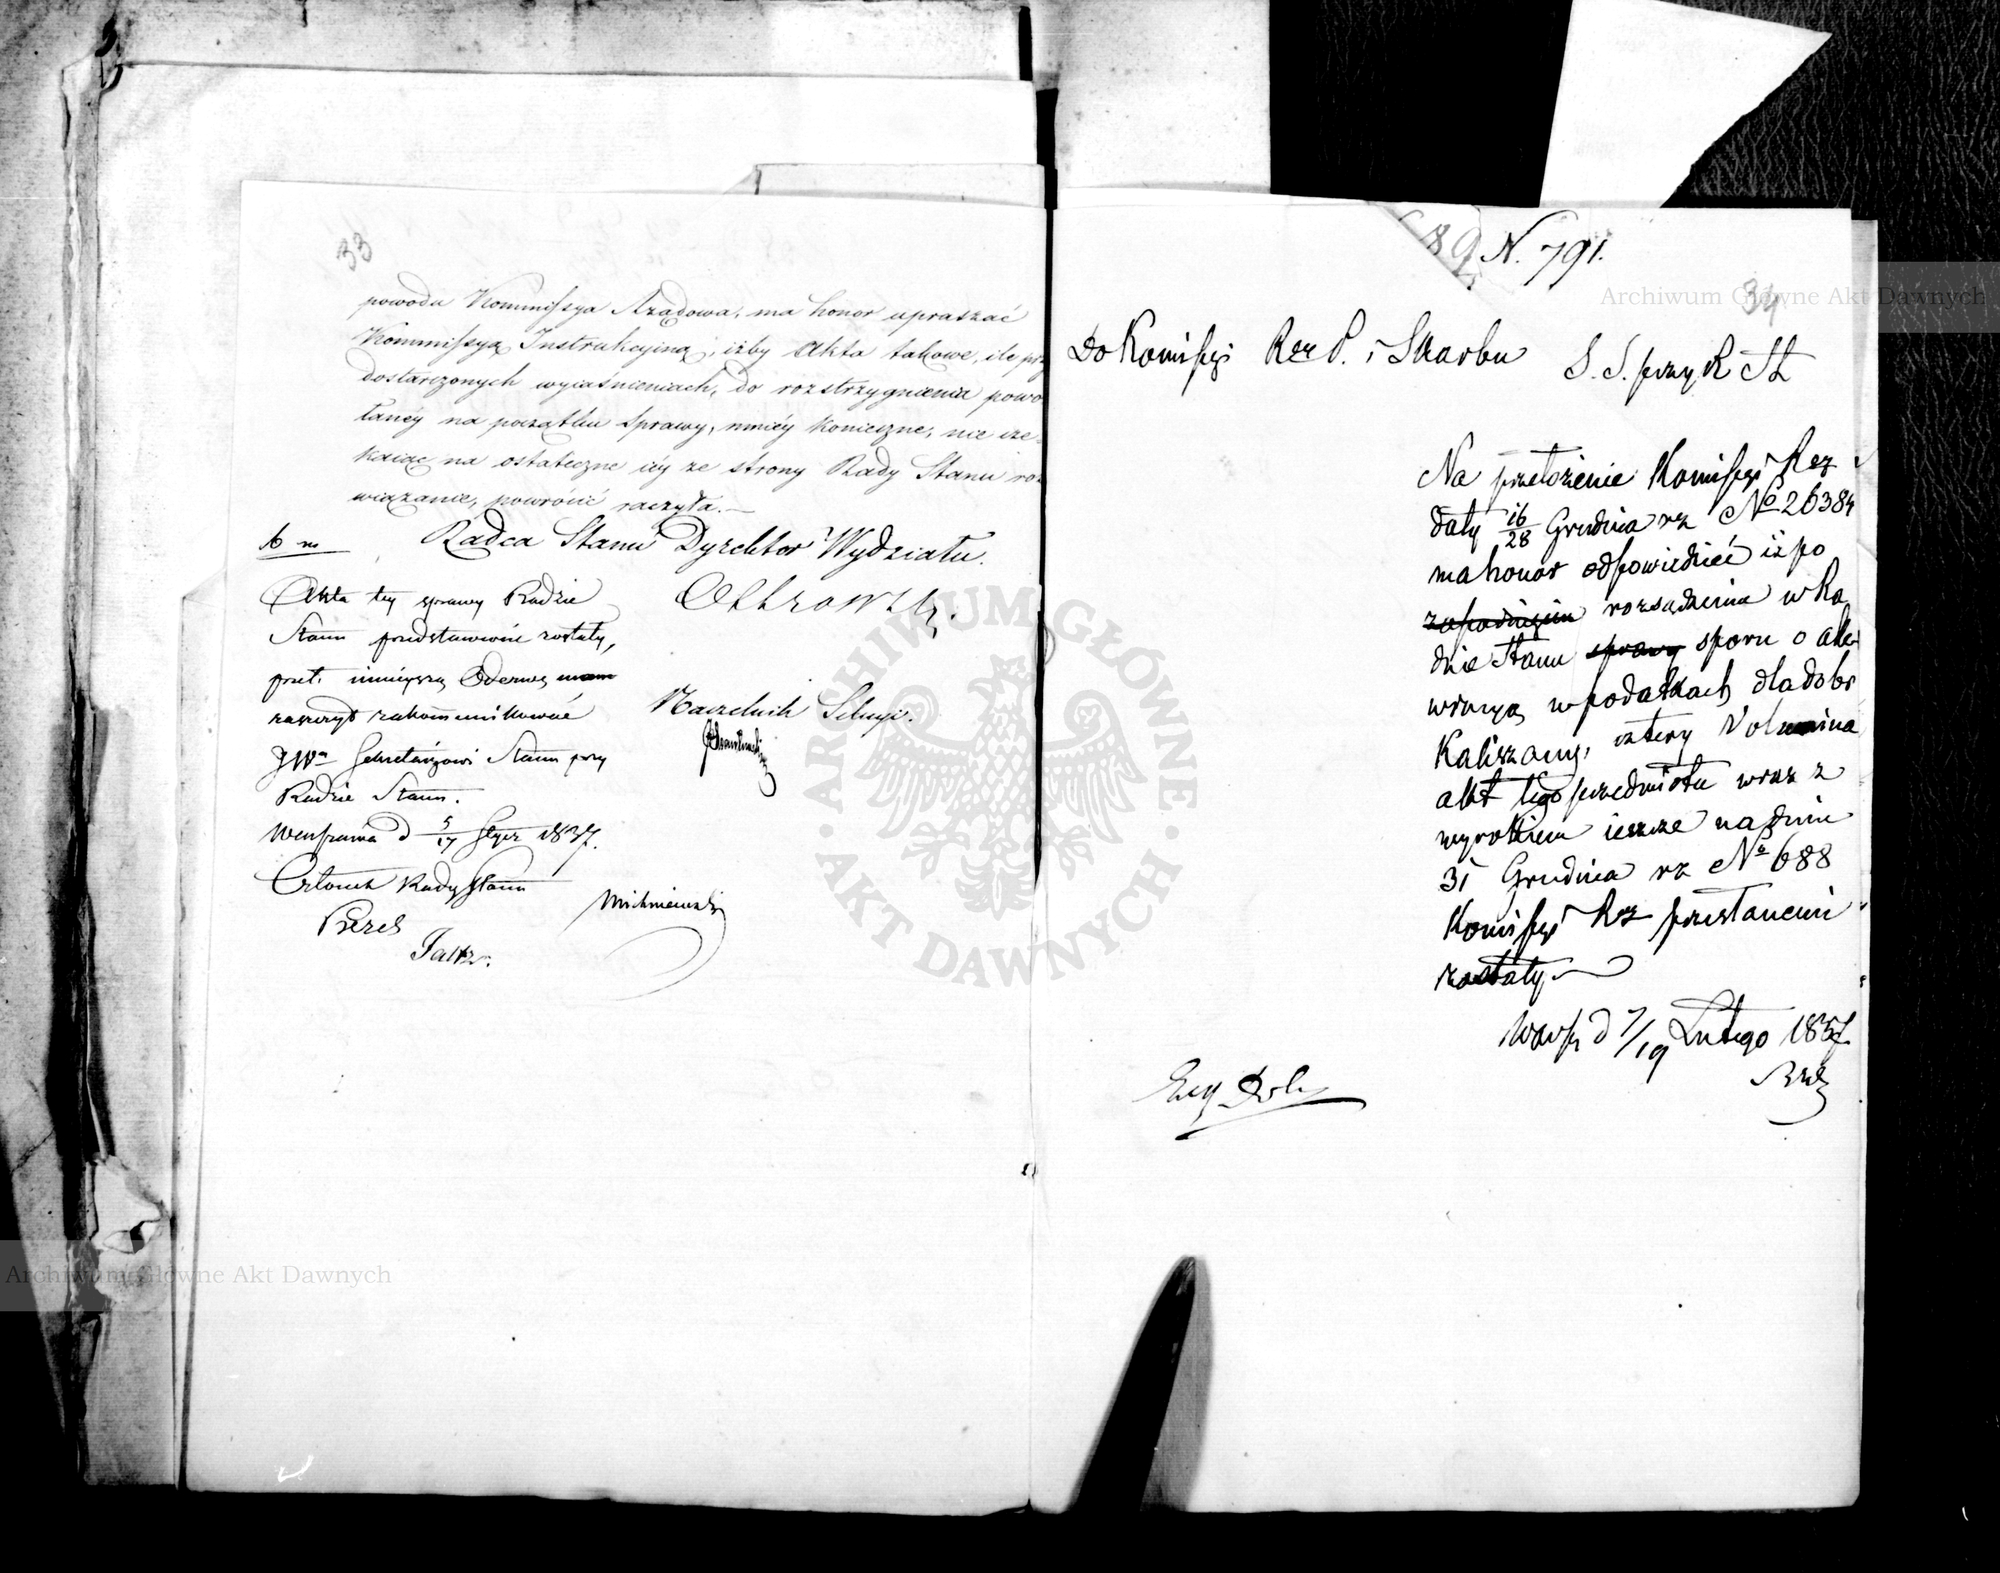 33
powodu Kommissya Rządowa, ma honor upraszać
Kommissyą Instrukcyiną, iżby Akta takowe, ile prz
dostarczonych wyiaśnieniach, do rozstrzygnienia powo
łanéy na początku Sprawy, mniéy konieczne, nie cze-
kaiąc na ostateczne iéy ze strony Rady Stanu roz
wiązanie, powrócić raczyła.—
Radca Stanu Dyrektor Wydziału.
Akta tey sprawy Radzie
Stanu przedstawione zostały,
przet. ninieyszą Odezwę
raczył zakommunikować
JWu Sekretarzowi Stanu przy
Radzie Stanu.
Warszawa d 5/17 1837.
Członek Rady Stanu
Naczelnik Sekcyi.
N. 791.
34
Do Komissyi Rzr P. i Skarbu
S. S. przy R St
Na przełożenie Komissyi Rzz
daty 16/28 Grudnia rz No 26384
ma honor odpowiedzieć iż po
rozsądzeniu w Ra
dzie Stanu sprawy sporu o abe
wracyą w podatkach dla dobr
Kaliszany, cztery Volumina
akt tego przedmiotu wraz z
wyrokiem ieszcze na dniu
31 Grudnia rz No 688
Komissyi Rzz przesłanemi
zostały
Warsz d 7/19 Lutego 1837
ARCHIWUM GŁÓWNE
AKT DAWNYCH
Archiwum Główne Akt Dawnych
Archiwum Główne Akt Dawnych